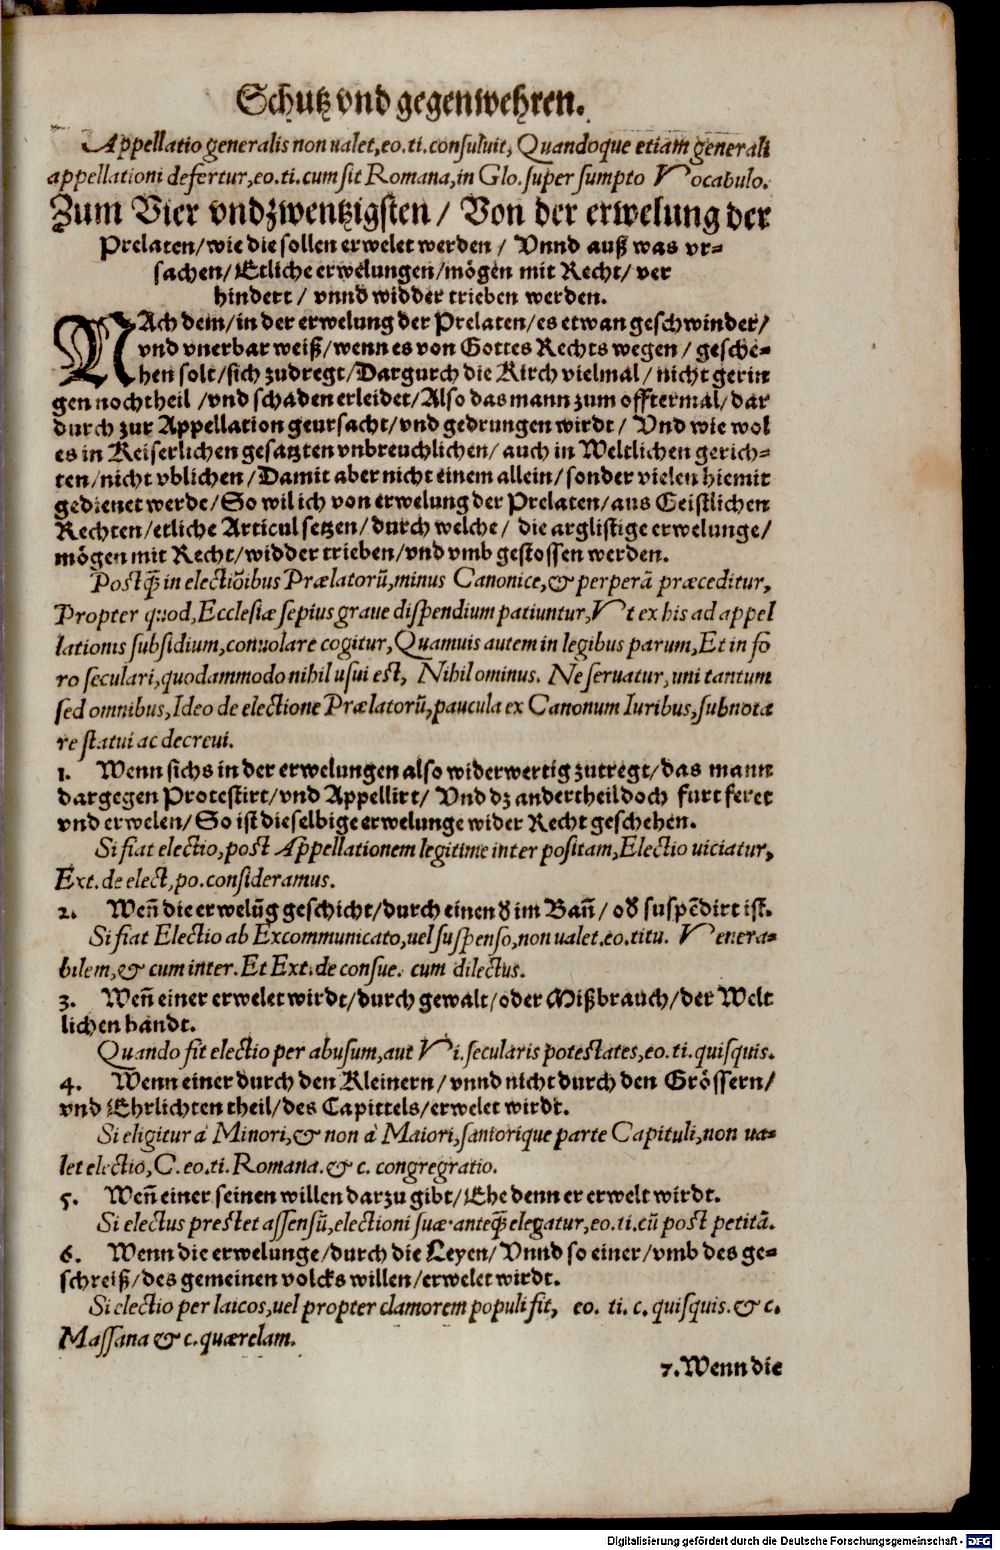 Schutz vnd gegenwehren.
Appellatio generalis non ualet, eo. ti. consuluit, Quandoque etiam generali
appellationi defertur, eo. ti. cum sit Romana, in Glo. super sumpto Vocabulo.
Zum Vier vnd zwentzigsten / Von der erwelung der
Prelaten / wie die sollen erwelet werden / Vnnd auß was vr-
sachen / Etliche erwelungen / mögen mit Recht / ver
hindert / vnnd widder trieben werden.
NAch dem / in der erwelung der Prelaten / es etwan geschwinder /
vnd vnerbar weiß / wenn es von Gottes Rechts wegen / gesche-
hen solt / sich zudregt / Dargurch die Kirch vielmal / nicht gerin
gen nochtheil / vnd schaden erleidet / Also das mann zum offtermal / dar
durch zur Appellation geursacht / vnd gedrungen wirdt / Vnd wie wol
es in Keiserlichen gesatzten vnbreuchlichen / auch in Weltlichen gerich-
ten / nicht vblichen / Damit aber nicht einem allein / sonder vielen hiemit
gedienet werde / So wil ich von erwelung der Prelaten / aus Geistlichen
Rechten / etliche Articul setzen / durch welche / die arglistige erwelunge /
mögen mit Recht / widder trieben / vnd vmb gestossen werden.
Postq̃ in electiõibus Prælatorũ, minus Canonice, & perperã præceditur,
Propter quod, Ecclesiæ sepius graue dispendium patiuntur, Vt ex his ad appel
lationis subsidium, conuolare cogitur, Quamuis autem in legibus parum, Et in fo
ro seculari, quodammodo nihil usui est, Nihil ominus. Ne seruatur, uni tantum
sed omnibus, Ideo de electione Prælatorũ, paucula ex Canonum Iuribus, subnota
re statui ac decreui.
1. Wenn sichs in der erwelungen also widerwertig zutregt / das mann
dargegen Protestirt / vnd Appellirt / Vnd dz andertheil doch furt feret
vnd erwelen / So ist dieselbige erwelunge wider Recht geschehen.
Si fiat electio, post Appellationem legitime inter positam, Electio uiciatur,
Ext. de elect, po. consideramus.
2. Weñ die erwelũg geschicht / durch einen ď im Bañ / oď suspẽdirt ist.
Si fiat Electio ab Excommunicato, uel suspenso, non ualet. eo. titu. Venera-
bilem, & cum inter. Et Ext. de consue. cum dilectus.
3. Weñ einer erwelet wirdt / durch gewalt / oder Mißbrauch / der Welt
lichen handt.
Quando fit electio per abusum, aut Vi. secularis potestates, eo. ti. quisquis.
4. Wenn einer durch den Kleinern / vnnd nicht durch den Grössern /
vnd Ehrlichten theil / des Capittels / erwelet wirdt.
Si eligitur à Minori, & non à Maiori, saniorique parte Capituli, non ua-
let electio, C. eo. ti. Romana. & c. congregratio.
5. Weñ einer seinen willen darzu gibt / Ehe denn er erwelt wirdt.
Si electus prestet assensũ, electioni suæ anteq̃ elegatur, eo. ti. cũ post petitã.
6. Wenn die erwelunge / durch die Leyen / Vnnd so einer / vmb des ge-
schreiß / des gemeinen volcks willen / erwelet wirdt.
Si electio per laicos, uel propter clamorem populi fit, eo. ti. c. quisquis. & c.
Massana & c. quærelam.
7. Wenn die
Digitalisierung gefördert durch die Deutsche Forschungsgemeinschaft - DFG